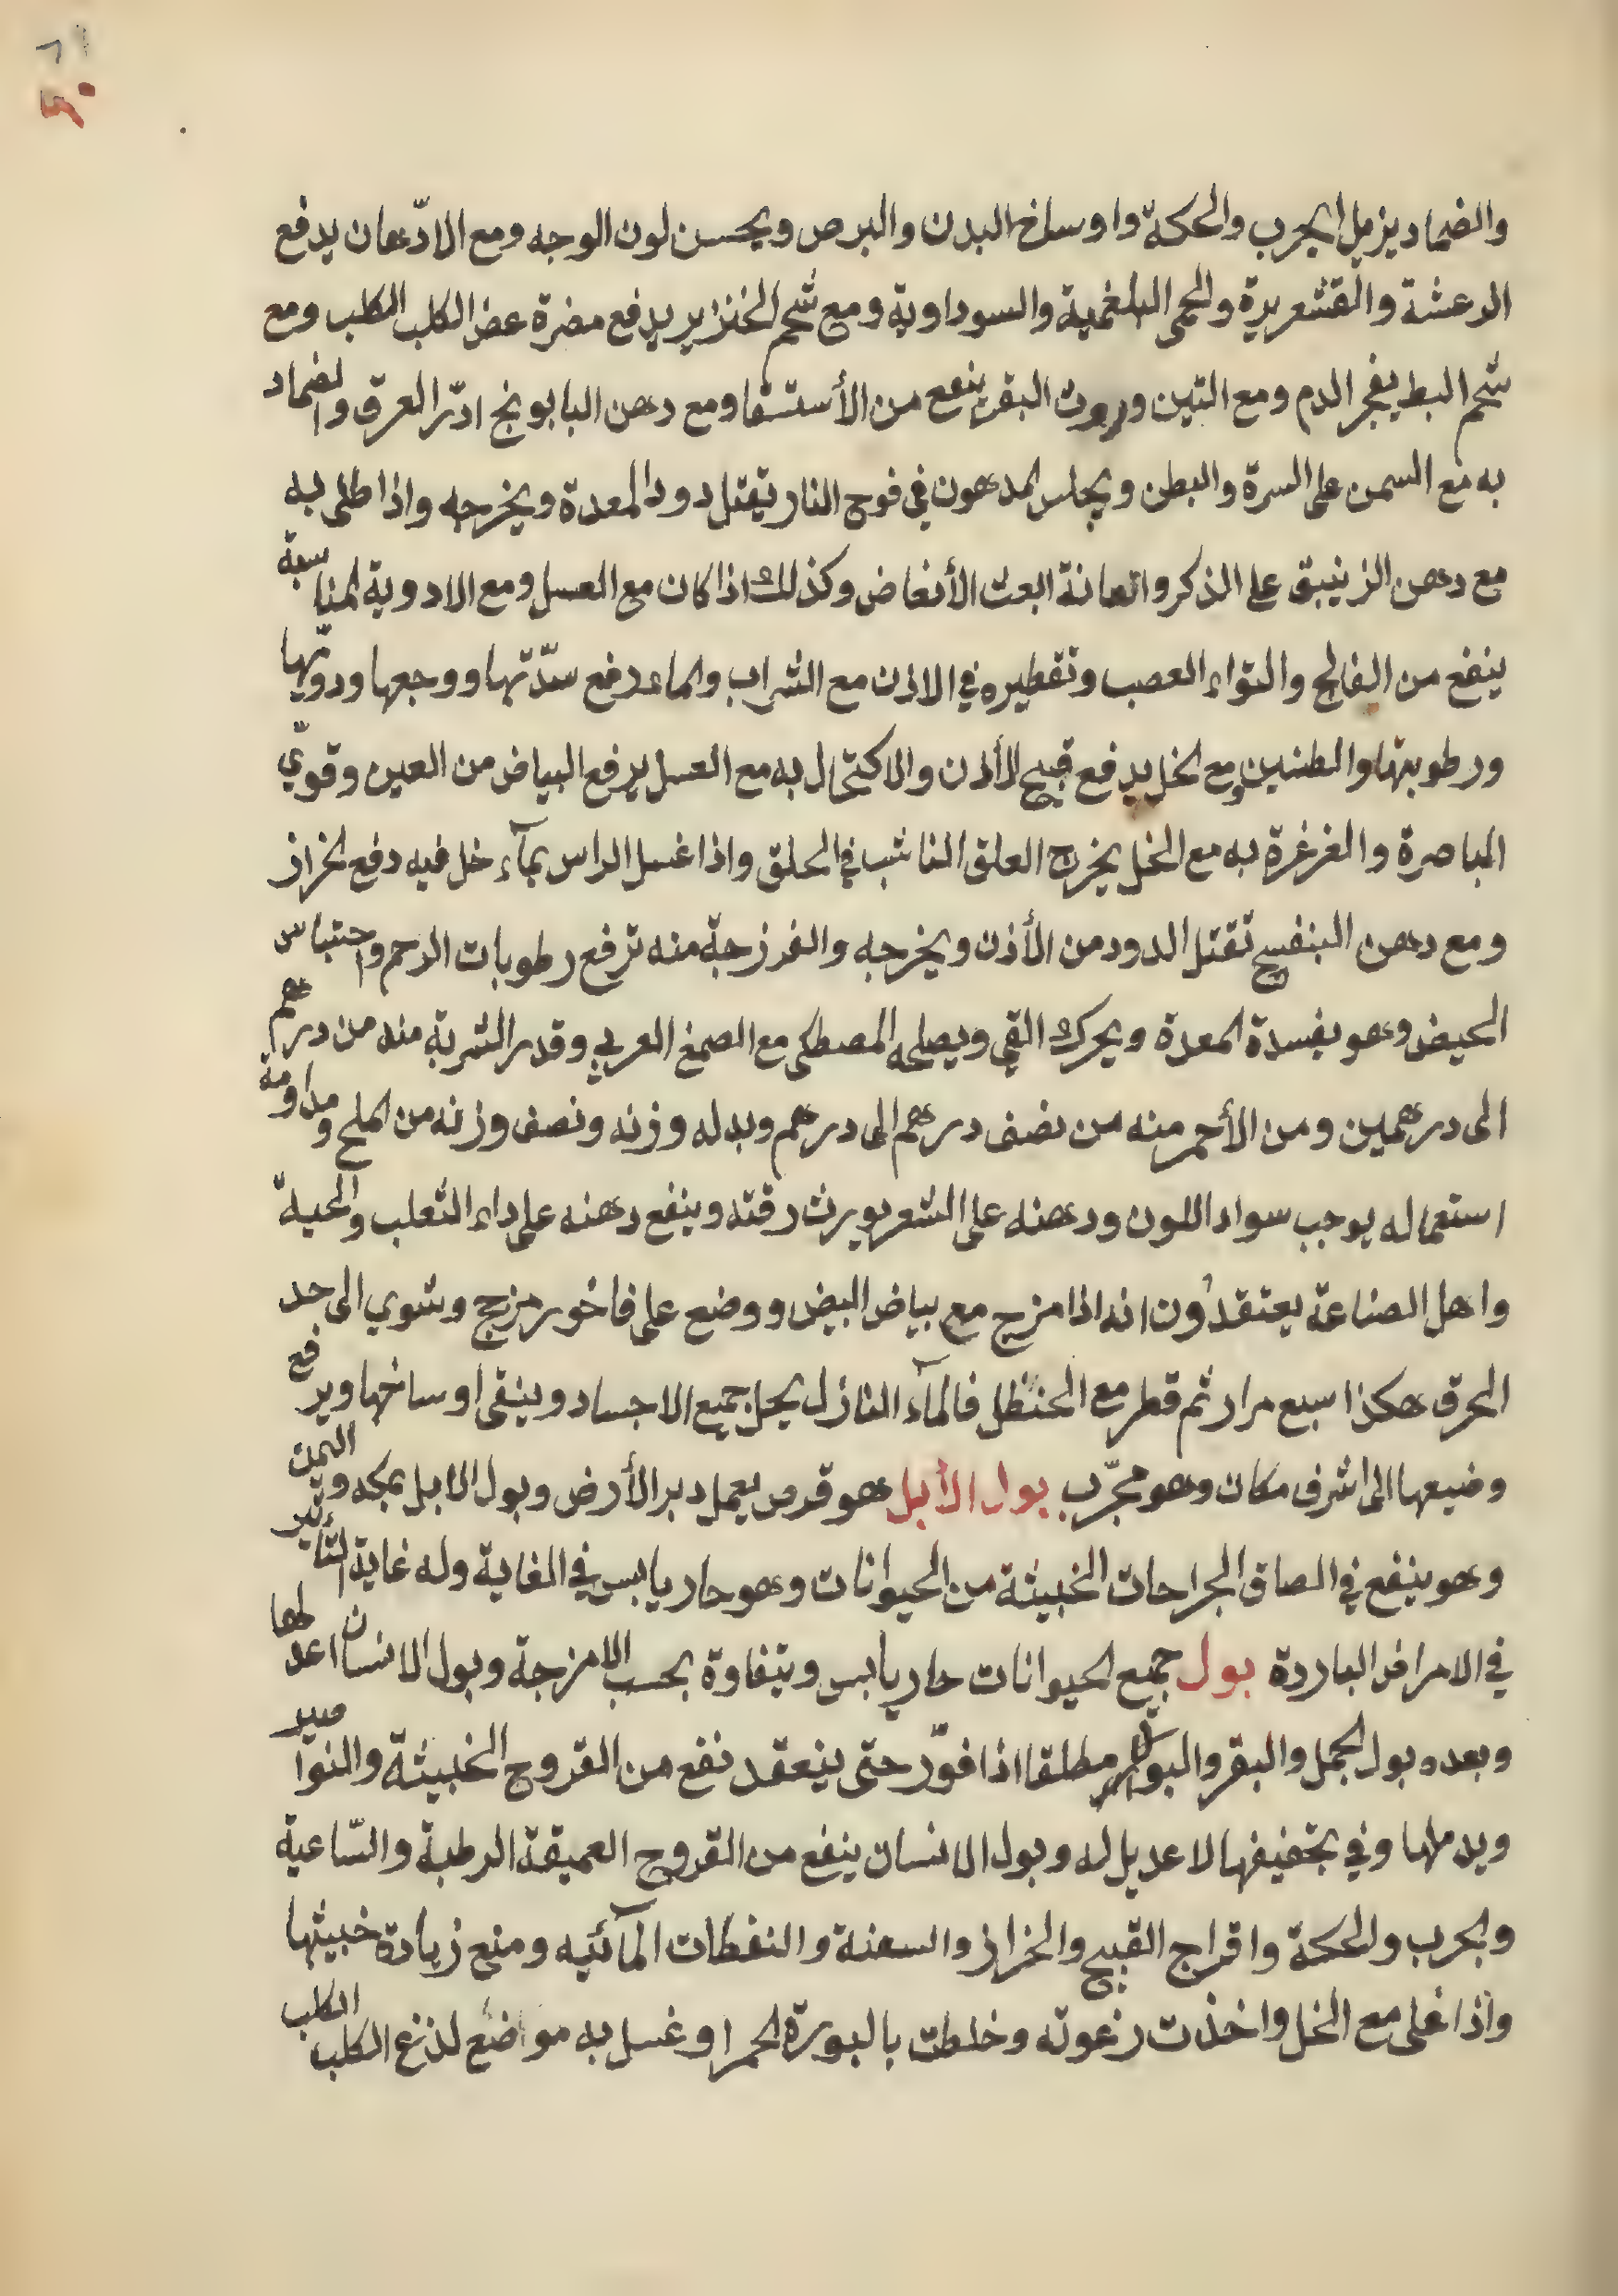 والضماد يزيل الجرب والحكة واوساخ البدن والبرص ويحسن لون الوجه ومع الادّهان يدفع
الرعشة والقشعريرة والحمى البلغمية والسوداوية ومع شحم الخنزير يدفع مضرة عض الكلب الكلب ومع
شحم البط يفجر الدم ومع التين وروث البقر ينفع من الأستسقا ومع دهن البابونج ادّر العرق والضماد
به مع السمن على السرة والبطن ويجلس المدهون في فوح النار يقتل دود المعدة ويخرجه واذا طلى به
مع دهن الزينبق على الذكر والعانة ابعث الأنعاض وكذلك اذا كان مع العسل ومع الادوية المناسبة
ينفع من الفالج والتواء العصب وتقطيره في الاذن مع الشراب والماء دفع سدّتها ووجعها ودويّها
ورطوبتها والطنين ومع الخل يدفع قيح الأذن والاكتحال به مع العسل يرفع البياض من العين وقوّي
الباصرة والغرغرة به مع الخل يخرج العلق الناشب في الحلق واذا غسل الراس بمآء خل فيه دفع الخزاز
ومع دهن البنفسج تقتل الدود من الأذن ويخرجه والفرزجة منه ترفع رطوبات الرحم واحتباس
الحيض وهو يفسدة المعدة ويحرك القي ويصلحه المصطكى مع الصمغ العربي وقدر الشربة منه من درهم
الى درهمين ومن الأحمر منه من نصف درهم الى درهم وبدله وزنه ونصف وزنه من الملح ومداومة
استعماله يوجب سواد اللون ودهنه على الشعر يورث رقته وينفع دهنه على داء الثعلب والحية
واهل الصناعة يعتقدون انه اذا مزج مع بياض البيض ووضع على فاخور مزجج وشوي الى حد
الحرق هكذا سبع مرار ثم قطر مع الحنظل فالمآء النازل يحل جميع الاجساد وينقى اوساخها ويرفع
وضيعها الى اشرف مكان وهو مجرّب بول الأبل هو قرص يعمل دبر الأرض وبول الابل بمكه واليمن
وهو ينفع في الصاق الجراحات الخبيثة من الحيوانات وهو حار يابس في الغاية وله غاية التأثير
في الامراض الباردة بول جميع الحيوانات حار يابس ويتفاوة بحسب الامزجة وبول الانسان اعدلها
وبعده بول الجمل والبقر والبول مطلقا اذا فوّر حتى ينعقد نفع من القروح الخبيثة والنواصير
ويدملها وفي تجفيفها لا عديل له وبول الانسان ينفع من القروح العميقة الرطبة والسّاعية
والجرب والحكة واقراج القيح والخزاز والسعنة والنفطات المآئيه ومنع زيادة خبيثها
واذا غلى مع الخل واخذت رغوته وخلطت بالبورة الحمرا وغسل به مواضع لذغ الكلب الكلب